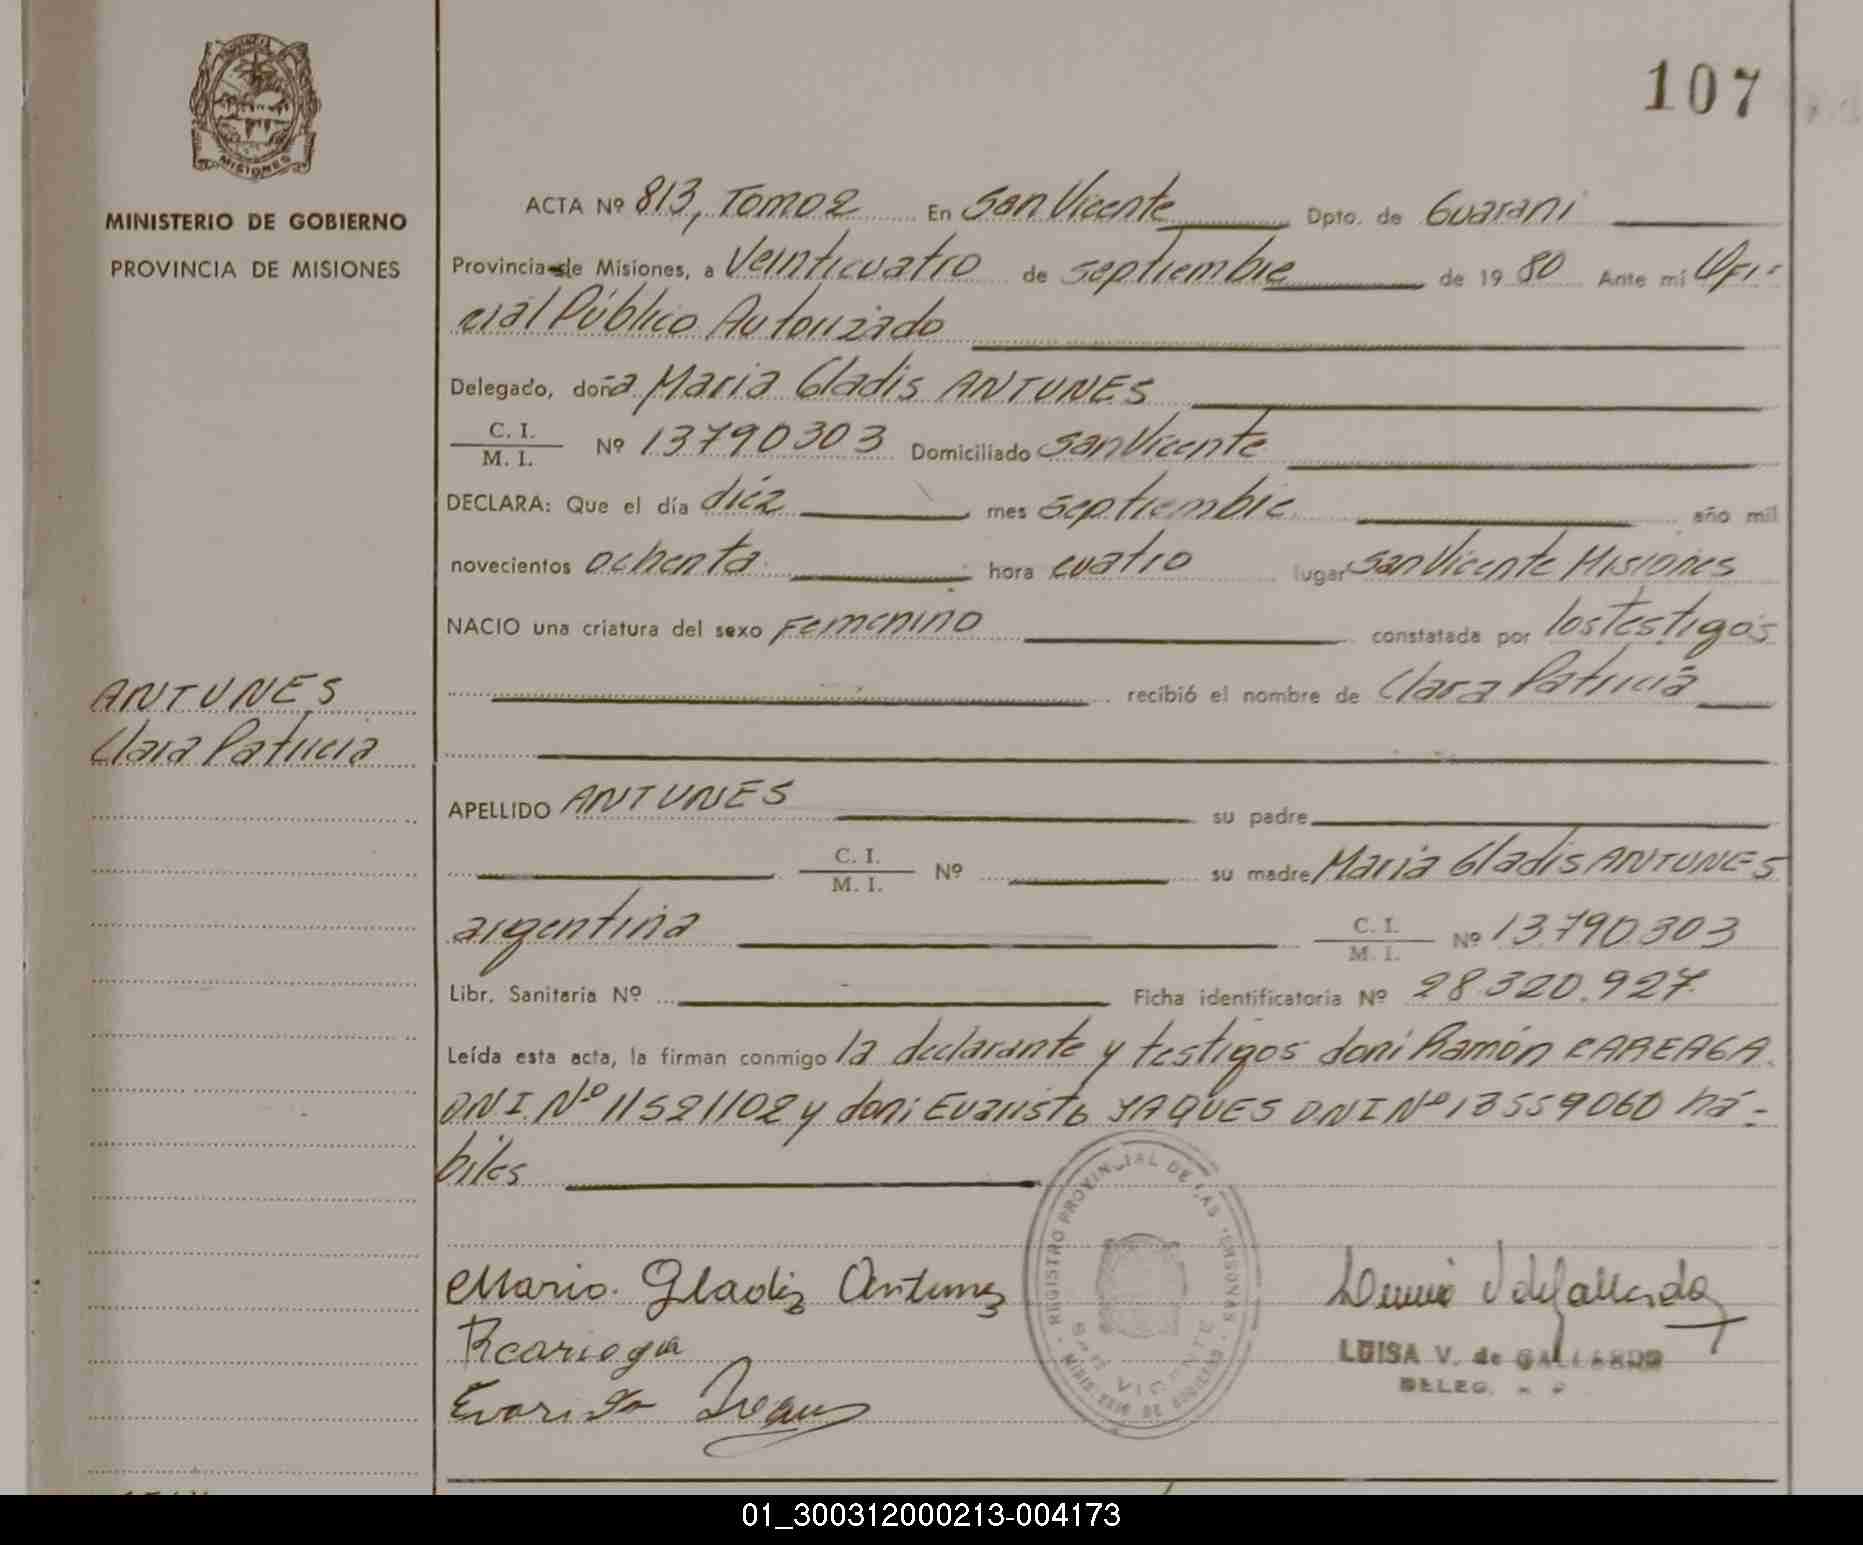 107
MISIONES
MINISTERIO DE GOBIERNO
PROVINCIA DE MISIONES
ANTUNES
Clara Patricia
ACTA Nº 813, Tomo 2 En San Vicente Dpto. de Guaraní
Provincia de Misiones, a Veinticuatro de septiembre de 1980 Ante mí Ofi-
cial Público Autorizado
Delegado, doña Maria Gladis ANTUNES
C. I. / M. I. Nº 13790303 Domiciliado San Vicente
DECLARA: Que el día diéz mes septiembre año mil
novecientos ochenta hora cuatro lugar San Vicente Misiones
NACIO una criatura del sexo Femenino constatada por los testigos
recibió el nombre de Clara Patricia
APELLIDO ANTUNES su padre
C. I. / M. I. Nº su madre Maria Gladis ANTUNES
argentina C. I. / M. I. Nº 13.790.303
Libr. Sanitaria Nº Ficha identificatoria Nº 28.320.927
Leída esta acta, la firman conmigo la declarante y testigos don: Ramón CAREAGA
DNI. Nº 11521102 y don: Evaristo YAQUES DNI Nº 13559060 há-
biles
Maria Gladis Antunes
R careaga
Evaristo
REGISTRO PROVINCIAL DE LAS PERSONAS
SAN VICENTE
MINISTERIO DE GOBIERNO
LUISA V. de GALLARDO
DELEG.
01_300312000213-004173